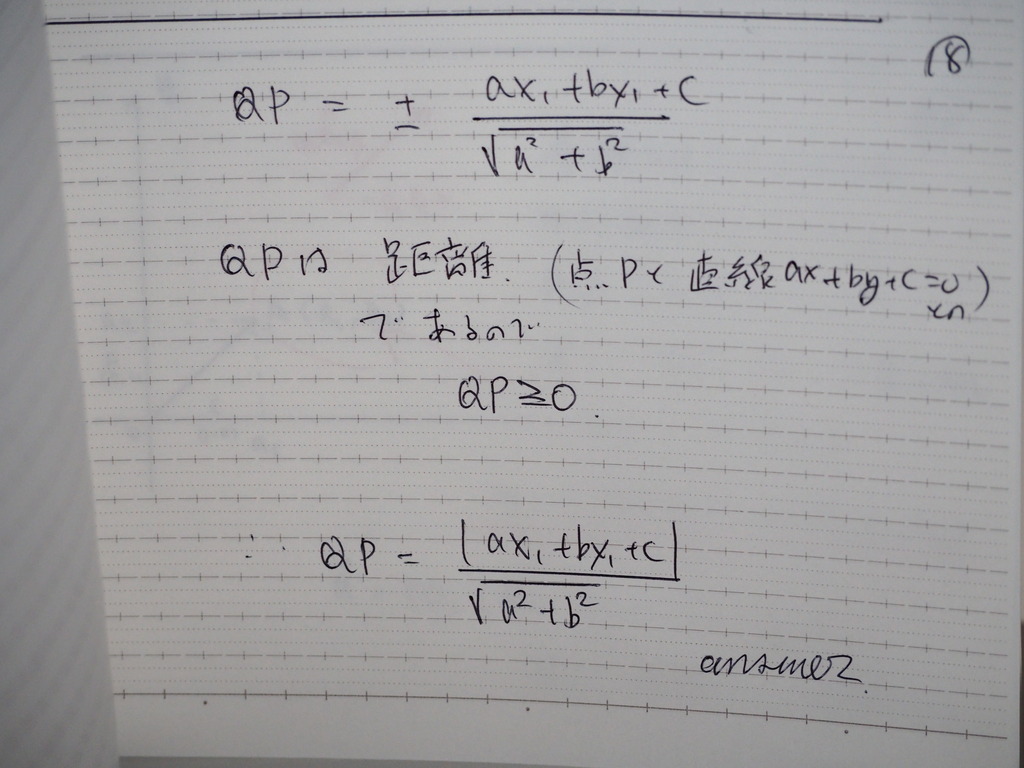 ⑱
QP = ± (ax₁+by₁+c)/√(a²+b²)
QPは 距離. (点Pと 直線ax+by+c=0との)
であるので
QP≧0.
∴ QP = |ax₁+by₁+c|/√(a²+b²)
answer.